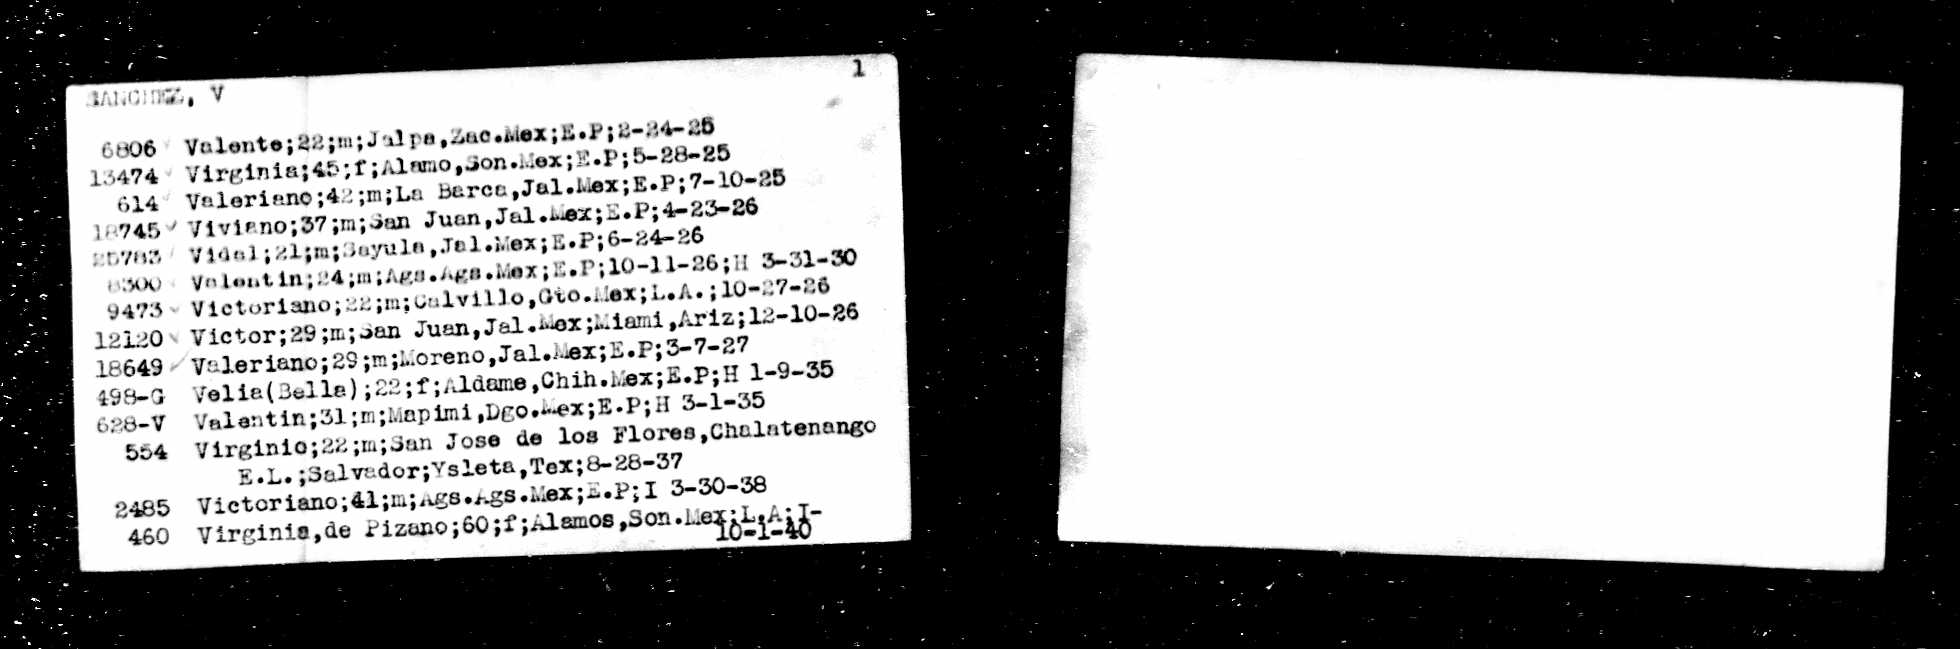 1
SANCHEZ, V
6806 Valente;22;m;Jalpa,Zac.Mex;E.P;2-24-25
13474 Virginia;45;f;Alamo,Son.Mex;E.P;5-28-25
614 Valeriano;42;m;La Barca,Jal.Mex;E.P;7-10-25
18745 Viviano;37;m;San Juan,Jal.Mex;E.P;4-23-26
25783 Vidal;21;m;Sayula,Jal.Mex;E.P;6-24-26
8300 Valentin;24;m;Ags.Ags.Mex;E.P;10-11-26;H 3-31-30
9473 Victoriano;22;m;Calvillo,Gto.Mex;L.A.;10-27-26
12120 Victor;29;m;San Juan,Jal.Mex;Miami,Ariz;12-10-26
18649 Valeriano;29;m;Moreno,Jal.Mex;E.P;3-7-27
498-G Velia(Bella);22;f;Aldame,Chih.Mex;E.P;H 1-9-35
628-V Valentin;31;m;Mapimi,Dgo.Mex;E.P;H 3-1-35
554 Virginio;22;m;San Jose de los Flores,Chalatenango
E.L.;Salvador;Ysleta,Tex;8-28-37
2485 Victoriano;41;m;Ags.Ags.Mex;E.P;I 3-30-38
460 Virginia,de Pizano;60;f;Alamos,Son.Mex;L.A;I-
10-1-40